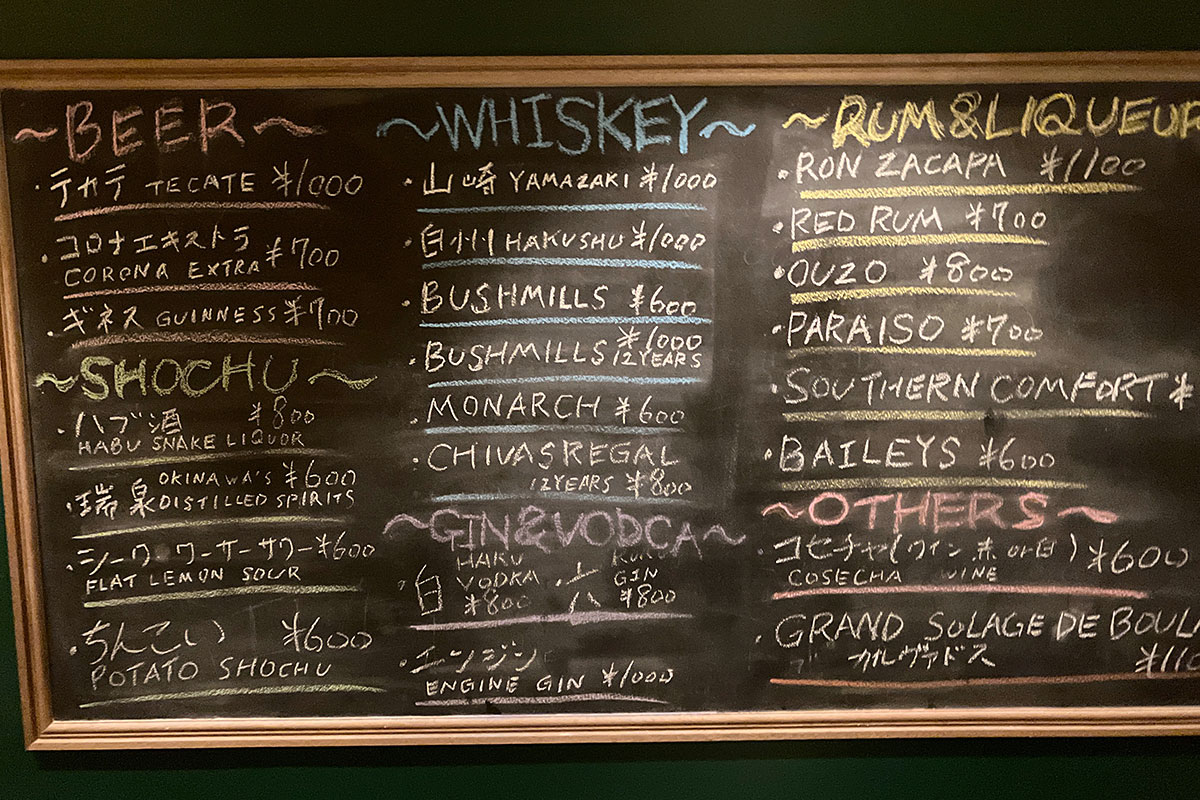 ~BEER~
・テカテ TECATE ¥1000
・コロナエキストラ
CORONA EXTRA ¥700
・ギネス GUINNESS ¥700
~SHOCHU~
・ハブ酒 ¥800
HABU SNAKE LIQUOR
・瑞泉 OKINAWA'S ¥600
DISTILLED SPIRITS
・シークワーサーサワー ¥600
FLAT LEMON SOUR
・ちんこい ¥600
POTATO SHOCHU
~WHISKEY~
・山崎 YAMAZAKI ¥1000
・白州 HAKUSHU ¥1000
・BUSHMILLS ¥600
・BUSHMILLS ¥1000
12YEARS
・MONARCH ¥600
・CHIVAS REGAL
12YEARS ¥800
~GIN&VODCA~
・白 HAKU
VODKA
¥800
・六
GIN
¥800
・エンジン
ENGINE GIN ¥1000
~RUM&LIQUEUR
・RON ZACAPA ¥1100
・RED RUM ¥700
・OUZO ¥800
・PARAISO ¥700
・SOUTHERN COMFORT ¥
・BAILEYS ¥600
~OTHERS~
・コセチャ(ワイン 赤 or 白) ¥600
COSECHA WINE
・GRAND SOLAGE DE BOULA
カルヴァドス ¥110